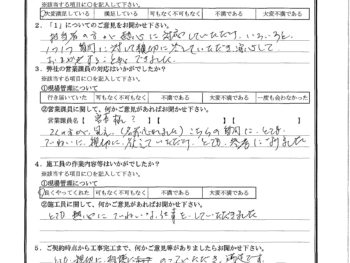 ※該当する項目に○を記入して下さい。
大変満足している 満足している 可もなく不可もなく 不満である 大変不満である
2．「1」についてのご意見をお聞かせ下さい。
担当者の方が熱心に対応していただき、いろいろと、
1つ1つ質問に対して親切に答えていただき、安心して
おまかせすることができました。
3．弊社の営業課員の対応はいかがでしたか？
※該当する項目に○を記入して下さい。
①現場管理について
行き届いていた 可もなく不可もなく 不満である 大変不満である 一度も会わなかった
②営業課員に関して、何かご意見があればお聞かせ下さい。
営業課員名【 】【 】
こちらの質問に、とても
ていねいに、親切に、答えていただけ、とても、参考になりました
4．施工員の作業内容等はいかがでしたか？
※該当する項目に○を記入して下さい。
①現場管理について
良くやってくれた 可もなく不可もなく 不満である 大変不満である
②施工員に関して、何かご意見があればお聞かせ下さい。
とても熱心に ていねいな仕事をしていただきました
5．ご契約時点から工事完工まで、何かご意見等がありましたらお聞かせ下さい。
とても親切に、相談に のっていただき、満足です。